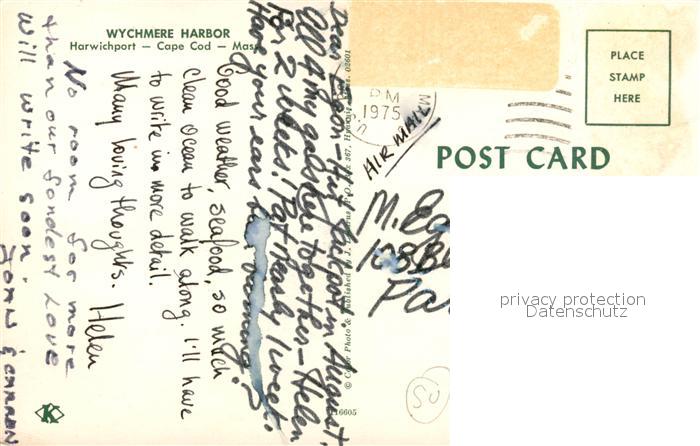 WYCHMERE HARBOR
Harwichport — Cape Cod — Mass.
Harwichport in August.
All 4 my gals here together — Helen
for 2 weeks! Pat & family 1 week.
Have your ears been burning?
Good weather, seafood, so much
clean ocean to walk along. I'll have
to write in more detail.
Many loving thoughts.
Helen
No room for more
than our fondest love
will write soon.
JOHN &
K
© Color Photo & Published by J.
02601
16605
PM
1975
AIR MAIL
PLACE
STAMP
HERE
POST CARD
M.
108
Pa
US
privacy protection
Datenschutz